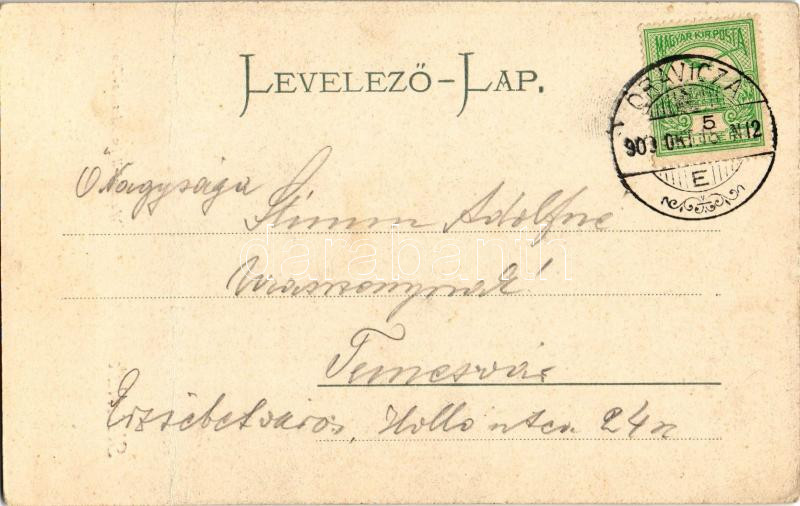 LEVELEZŐ-LAP.
MAGYAR KIR. POSTA
5
ORAVICZA
909 OKT. N12
E
Ő Nagysága
Stimm Adolfne
Urasszonynak!
Temesvár
Erzsébetváros, Holló utca 24 n
darabanth